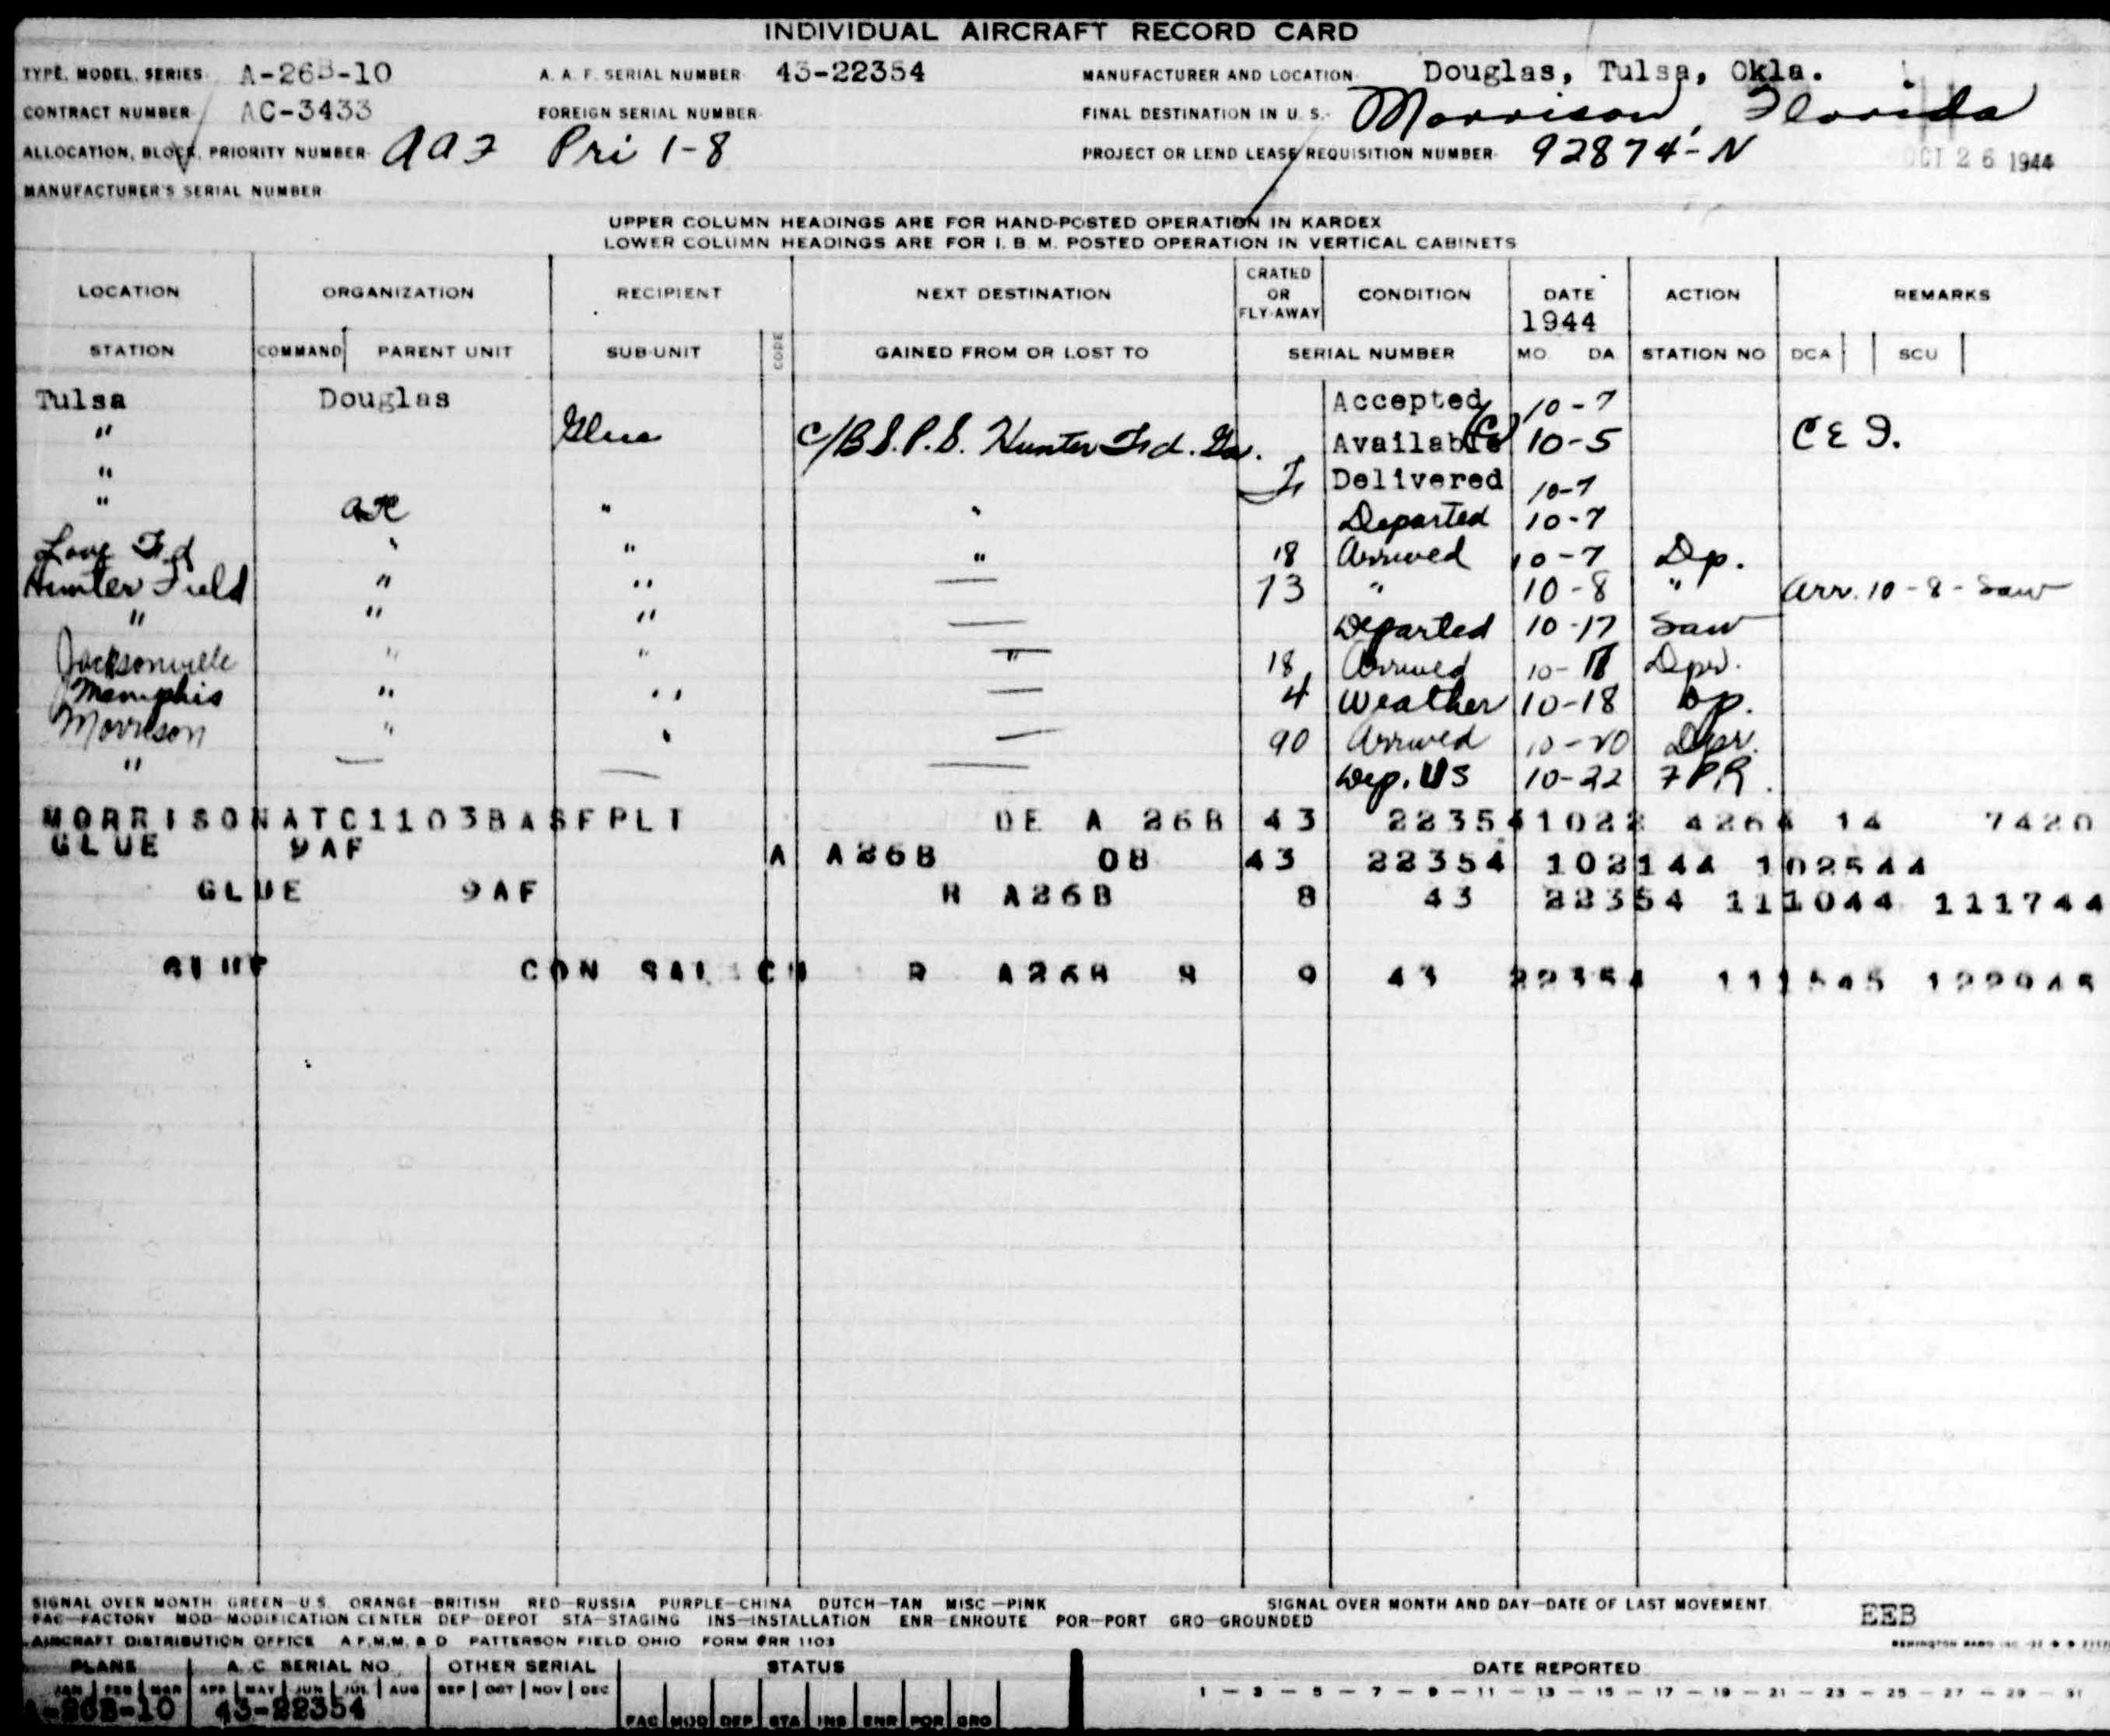 INDIVIDUAL AIRCRAFT RECORD CARD
TYPE, MODEL, SERIES A-26B-10 A. A. F. SERIAL NUMBER 43-22354 MANUFACTURER AND LOCATION Douglas, Tulsa, Okla.
CONTRACT NUMBER AC-3433 FOREIGN SERIAL NUMBER FINAL DESTINATION IN U. S. Morrison, Florida
ALLOCATION, BLOCK, PRIORITY NUMBER AAF Pri 1-8 PROJECT OR LEND LEASE REQUISITION NUMBER 92874-N OCT 26 1944
MANUFACTURER'S SERIAL NUMBER
UPPER COLUMN HEADINGS ARE FOR HAND-POSTED OPERATION IN KARDEX
LOWER COLUMN HEADINGS ARE FOR I. B. M. POSTED OPERATION IN VERTICAL CABINETS
LOCATION ORGANIZATION RECIPIENT NEXT DESTINATION CRATED OR FLY-AWAY CONDITION DATE 1944 ACTION REMARKS
STATION COMMAND PARENT UNIT SUB-UNIT CODE GAINED FROM OR LOST TO SERIAL NUMBER MO. DA. STATION NO DCA SCU
Tulsa Douglas Accepted 10-7
" Glue C/B S.P.S. Hunter Fd. Ga. Available 10-5 C E F.
" F Delivered 10-7
" " " Departed 10-7
Love Fd " " " 18 Arrived 10-7 Dp.
Hunter Field " " — 73 " 10-8 " Arr. 10-8-Saw
" " " — Departed 10-17 Saw
Jacksonville " " " 18 Arrived Dpr.
Memphis " " — 4 Weather 10-18 Dp.
Morrison " " — 90 Arrived 10-20 Dpr.
" — — — Dep. US 10-22 FPR.
MORRISONATC1103BASFPLT DE A 26B 43 223541022 4264 14 7420
GLUE 9AF A A26B 0B 43 22354 102144 102544
GLUE 9AF R A26B 8 43 22354 111044 111744
GLUE CON SAL R A26B 9 43 22354 111545 122945
SIGNAL OVER MONTH GREEN—U.S. ORANGE—BRITISH RED—RUSSIA PURPLE—CHINA DUTCH—TAN MISC—PINK SIGNAL OVER MONTH AND DAY—DATE OF LAST MOVEMENT.
FAC—FACTORY MOD—MODIFICATION CENTER DEP—DEPOT STA—STAGING INS—INSTALLATION ENR—ENROUTE POR—PORT GRO—GROUNDED EEB
AIRCRAFT DISTRIBUTION OFFICE A.F.M.M. & D PATTERSON FIELD OHIO FORM #RR 1103 REMINGTON RAND INC
PLANE A. C. SERIAL NO. OTHER SERIAL STATUS DATE REPORTED
JAN FEB MAR APR MAY JUN JUL AUG SEP OCT NOV DEC 1 — 3 — 5 — 7 — 9 — 11 — 13 — 15 — 17 — 19 — 21 — 23 — 25 — 27 — 29 — 31
A-26B-10 43-22354 FAC MOD DEP STA INS ENR POR GRO